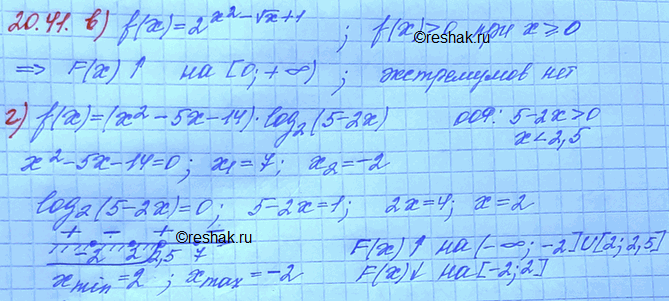 20.41. в) f(x)=2^{x²-√x+1} ; f(x)>0 при x≥0
©reshak.ru
⇒ F(x)↑ на [0;+∞) ; экстремумов нет
г) f(x)=(x²-5x-14)·log₂(5-2x) ООФ: 5-2x>0
x<2,5
x²-5x-14=0; x₁=7; x₂=-2
log₂(5-2x)=0; 5-2x=1; 2x=4; x=2
+ - +
-2 2 2,5 7
F(x)↑ на (-∞;-2]∪[2;2,5)
xmin=2 ; xmax=-2 F(x)↓ на [-2;2]
©reshak.ru